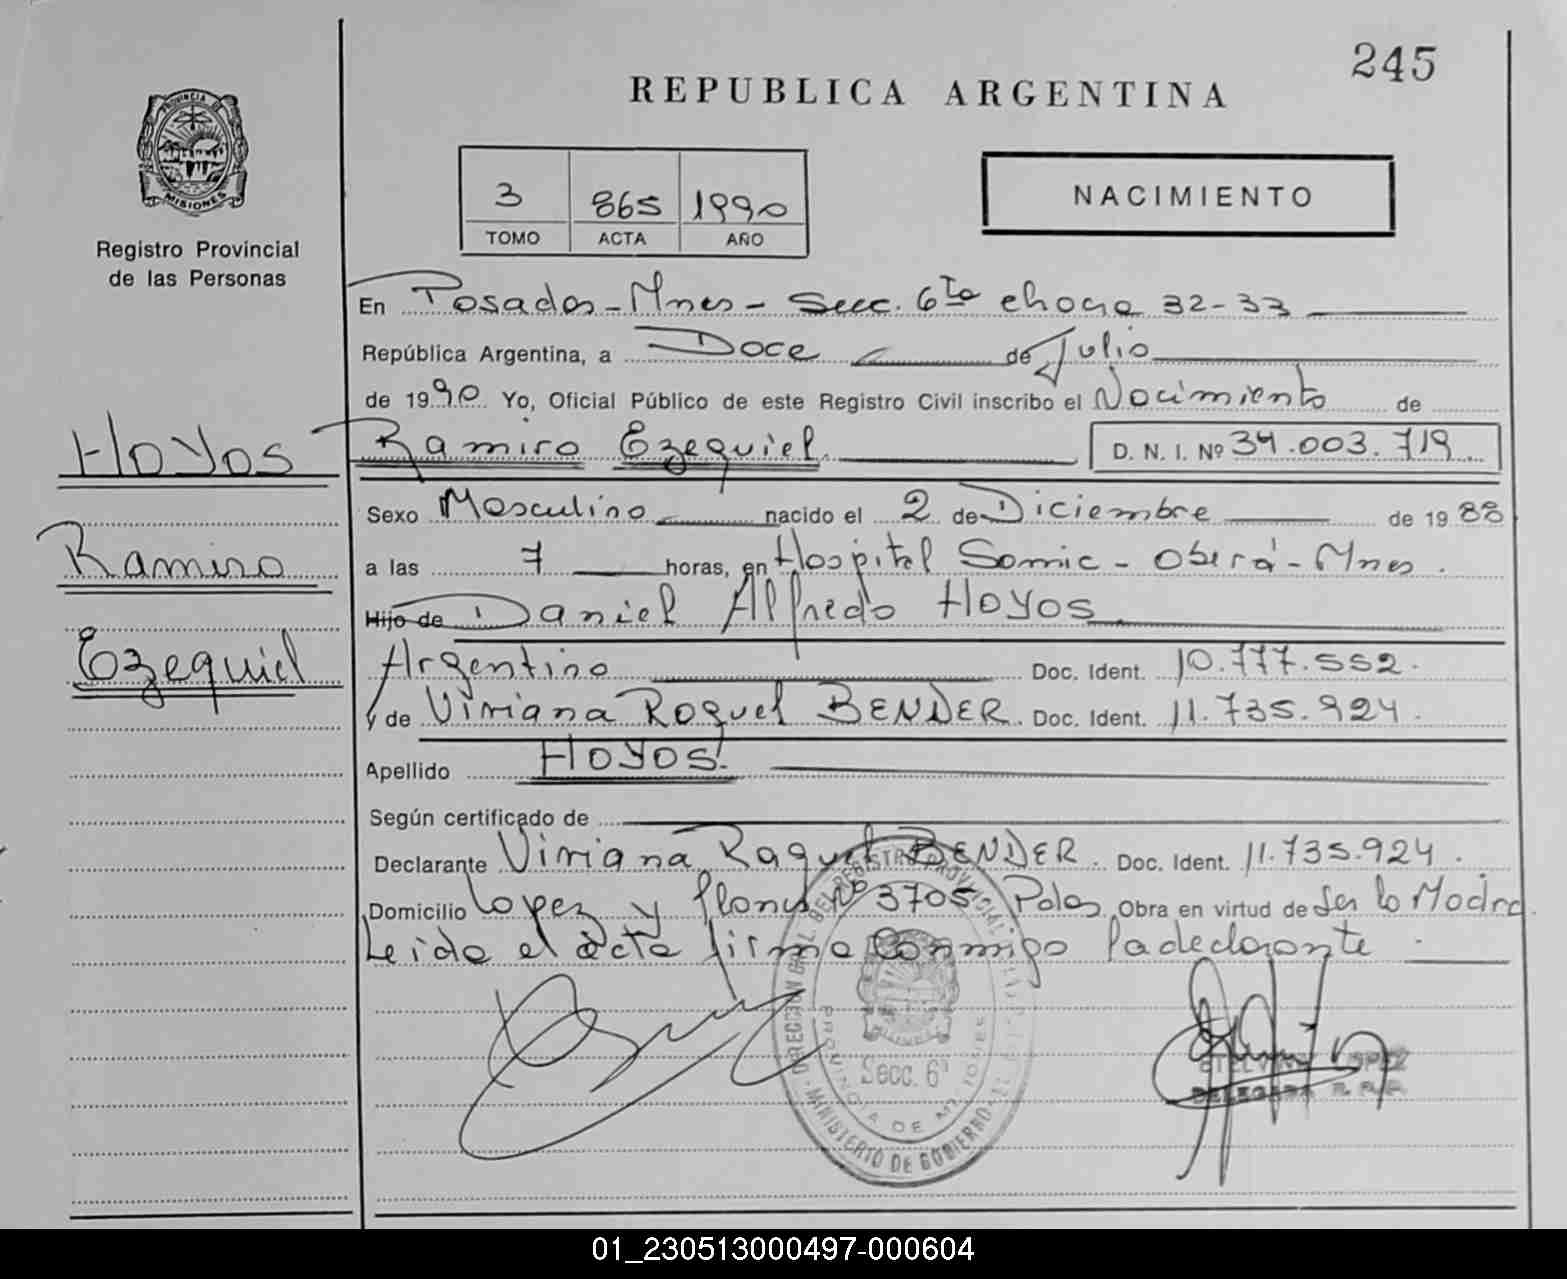 245
REPUBLICA ARGENTINA
PROVINCIA DE
MISIONES
Registro Provincial
de las Personas
3 865 1990
TOMO ACTA AÑO
NACIMIENTO
En Posadas-Mnes- Secc. 6ta chacra 32-33
República Argentina, a Doce de Julio
de 1990 Yo, Oficial Público de este Registro Civil inscribo el Nacimiento de
Ramiro Ezequiel. D. N. I. Nº 34.003.719
Hoyos
Ramiro
Ezequiel
Sexo Masculino nacido el 2 de Diciembre de 1988
a las 7 horas, en Hospital Samic - Oberá - Mnes.
Hijo de Daniel Alfredo Hoyos
Argentino Doc. Ident. 10.777.552.
y de Viviana Raquel BENDER. Doc. Ident. 11.735.924.
Apellido HOYOS.
Según certificado de
Declarante Viviana Raquel BENDER. Doc. Ident. 11.735.924.
Domicilio Lopez y Planes Nº 3705 Pdas. Obra en virtud de Ser la Madre
Leída el acta firma conmigo la declarante.
DIRECCION GRAL. DEL REGISTRO PROVINCIAL
Secc. 6ª
PROVINCIA DE MISIONES
MINISTERIO DE GOBIERNO
LOPEZ
DELEGADA
01_230513000497-000604